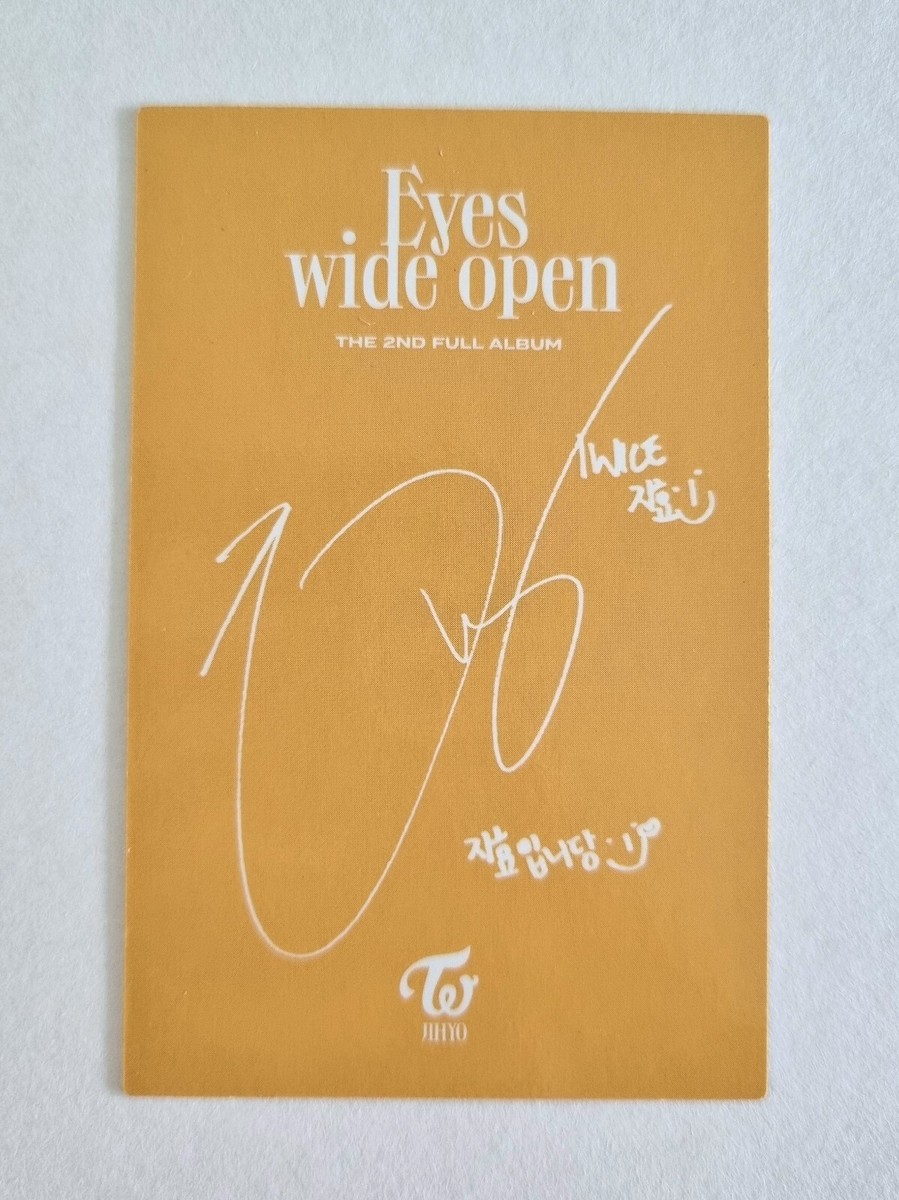 Eyes
wide open
THE 2ND FULL ALBUM
TWICE
지효:)
지효입니당 :)
TW
JIHYO